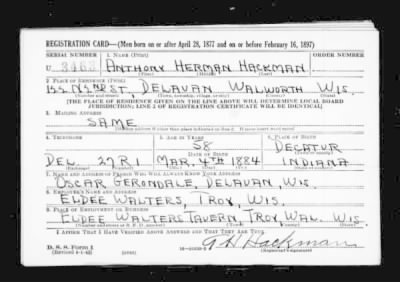 REGISTRATION CARD—(Men born on or after April 28, 1877 and on or before February 16, 1897)
SERIAL NUMBER 1. NAME (Print) ORDER NUMBER
U 3463 ANTHONY HERMAN HACKMAN
(First) (Middle) (Last)
2. PLACE OF RESIDENCE (Print)
N 2ND ST. DELAVAN WALWORTH WIS.
(Number and street) (Town, township, village, or city) (County) (State)
[THE PLACE OF RESIDENCE GIVEN ON THE LINE ABOVE WILL DETERMINE LOCAL BOARD
JURISDICTION; LINE 2 OF REGISTRATION CERTIFICATE WILL BE IDENTICAL]
3. MAILING ADDRESS
SAME
[Mailing address if other than place indicated on line 2. If same insert word same]
4. TELEPHONE 5. AGE IN YEARS 6. PLACE OF BIRTH
58 DECATUR
DATE OF BIRTH
DEL. 27R1 MAR. 4TH 1884 INDIANA
(Exchange) (Number) (Mo.) (Day) (Yr.) (State or country)
7. NAME AND ADDRESS OF PERSON WHO WILL ALWAYS KNOW YOUR ADDRESS
OSCAR GERONDALE, DELAVAN, WIS.
8. EMPLOYER'S NAME AND ADDRESS
ELDEE WALTERS, TROY, WIS.
9. PLACE OF EMPLOYMENT OR BUSINESS
ELDEE WALTERS TAVERN TROY WAL. WIS.
(Number and street or R. F. D. number) (Town) (County) (State)
I AFFIRM THAT I HAVE VERIFIED ABOVE ANSWERS AND THAT THEY ARE TRUE.
D. S. S. Form 1
(Revised 4-1-42) (over)
A H Hackman
(Registrant's signature)